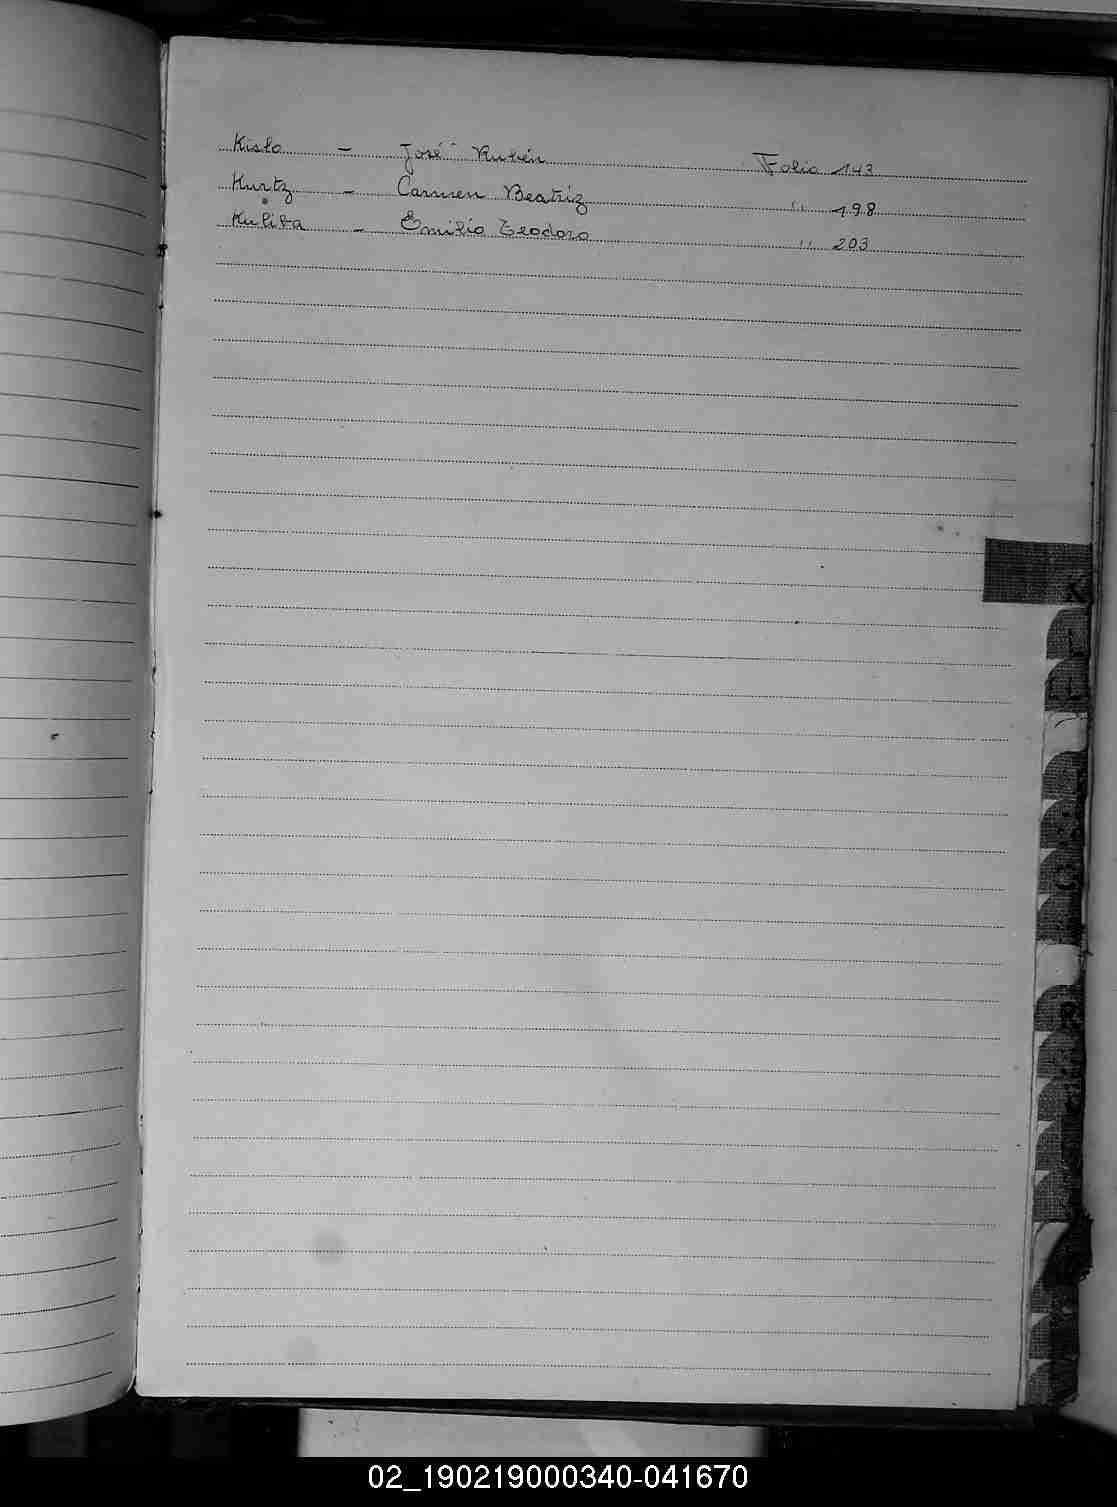 Kisto - José Rubén Folio 143
Kurtz - Carmen Beatriz " 198
Kuliba - Emilio Teodoro " 203
K
02_190219000340-041670